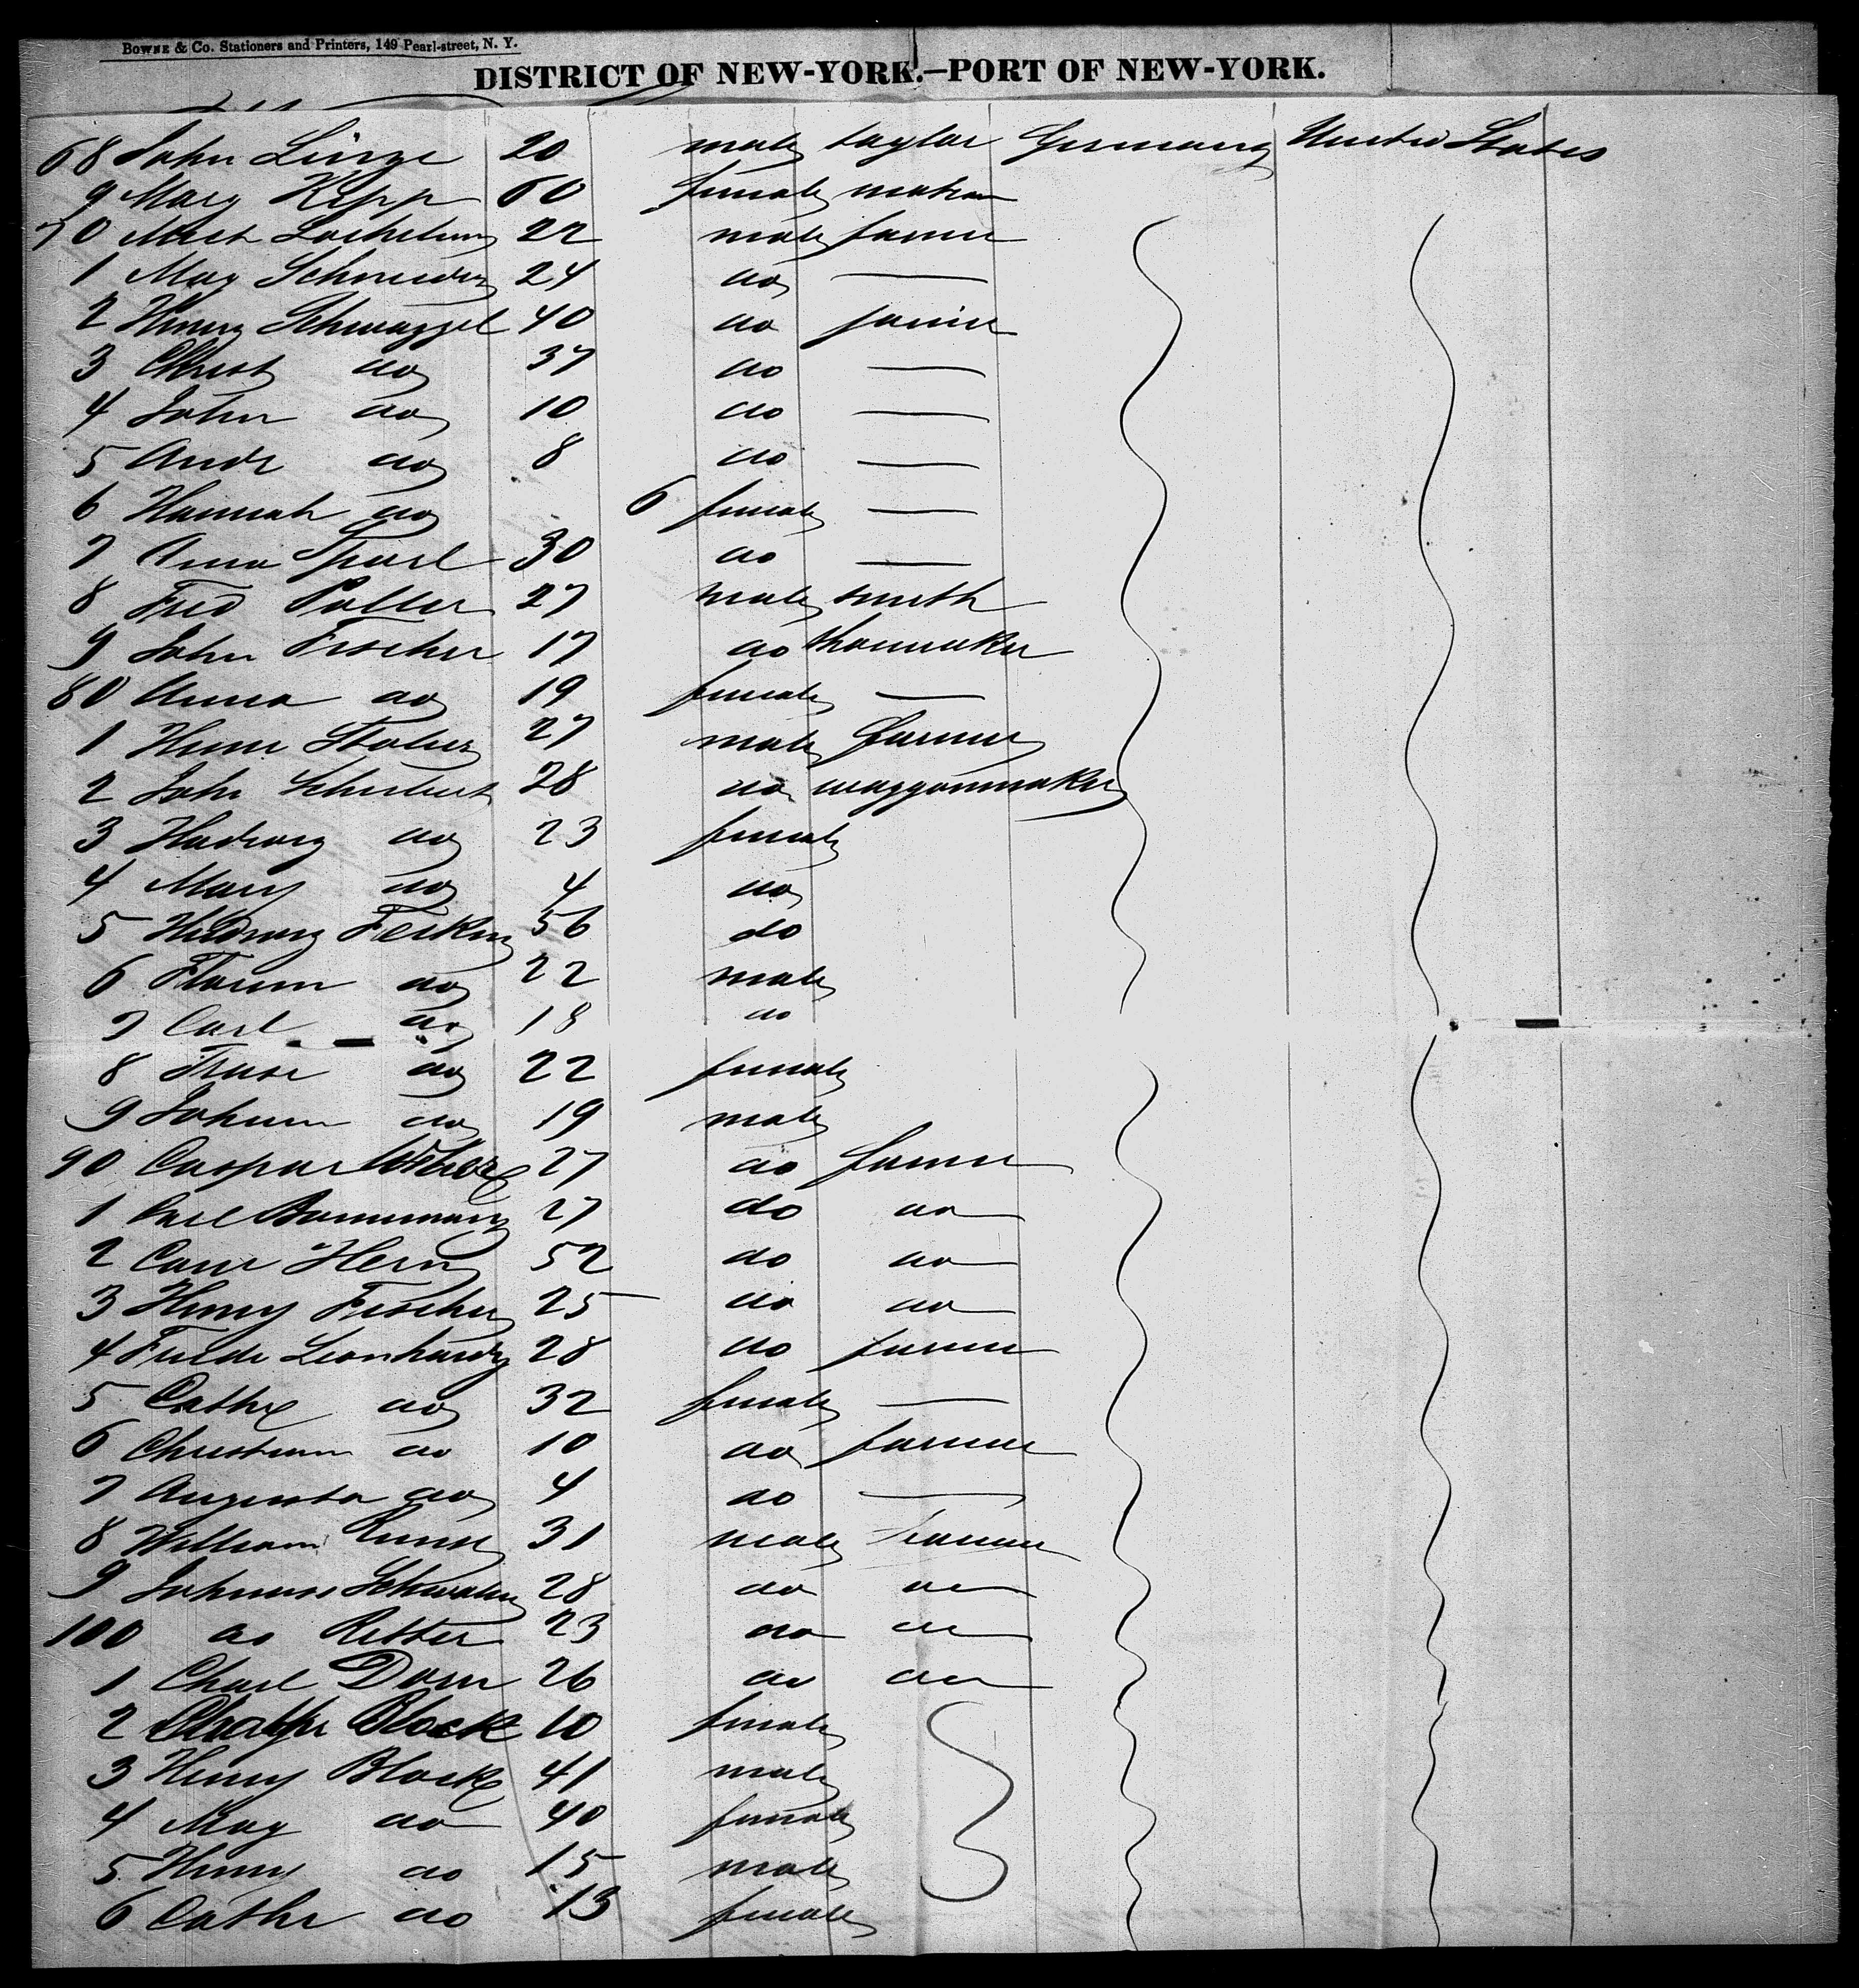 BOWNE & Co. Stationers and Printers, 149 Pearl-street, N. Y.
DISTRICT OF NEW-YORK.—PORT OF NEW-YORK.
68 John Linge 20 male taylor Germany United States
9 Mary Kipp 60 female matron
70 22 male farmer
1 Mag Schneider 24 do —
2 Henry Schwaggel 40 do farmer
3 Christ do 37 do —
4 John do 10 do —
5 Andr do 8 do —
6 Hannah do 6 female —
7 Anna 30 do —
8 Fred Poller 27 male smith
9 John Fischer 17 do shoemaker
80 Anna do 19 female —
1 27 male farmer
2 John Schubert 28 do waggonmaker
3 Hedwig do 23 female
4 Mary do 4 do
5 Hedwig 56 do
6 do 22 male
7 Carl do 18 do
8 do 22 female
9 Johann do 19 male
90 Caspar 27 do farmer
1 Carl 27 do do
2 52 do do
3 Henry Fischer 25 do do
4 Leonhardy 28 do farmer
5 Cathe do 32 female —
6 Christian do 10 do farmer
7 Augusta do 4 do —
8 William 31 male farmer
9 Johannes 28 do do
100 do Ritter 23 do do
1 Charl Dorn 26 do do
2 Block 10 female
3 Henry Block 41 male
4 Mag do 40 female
5 Henry do 15 male
6 Cathr do 13 female